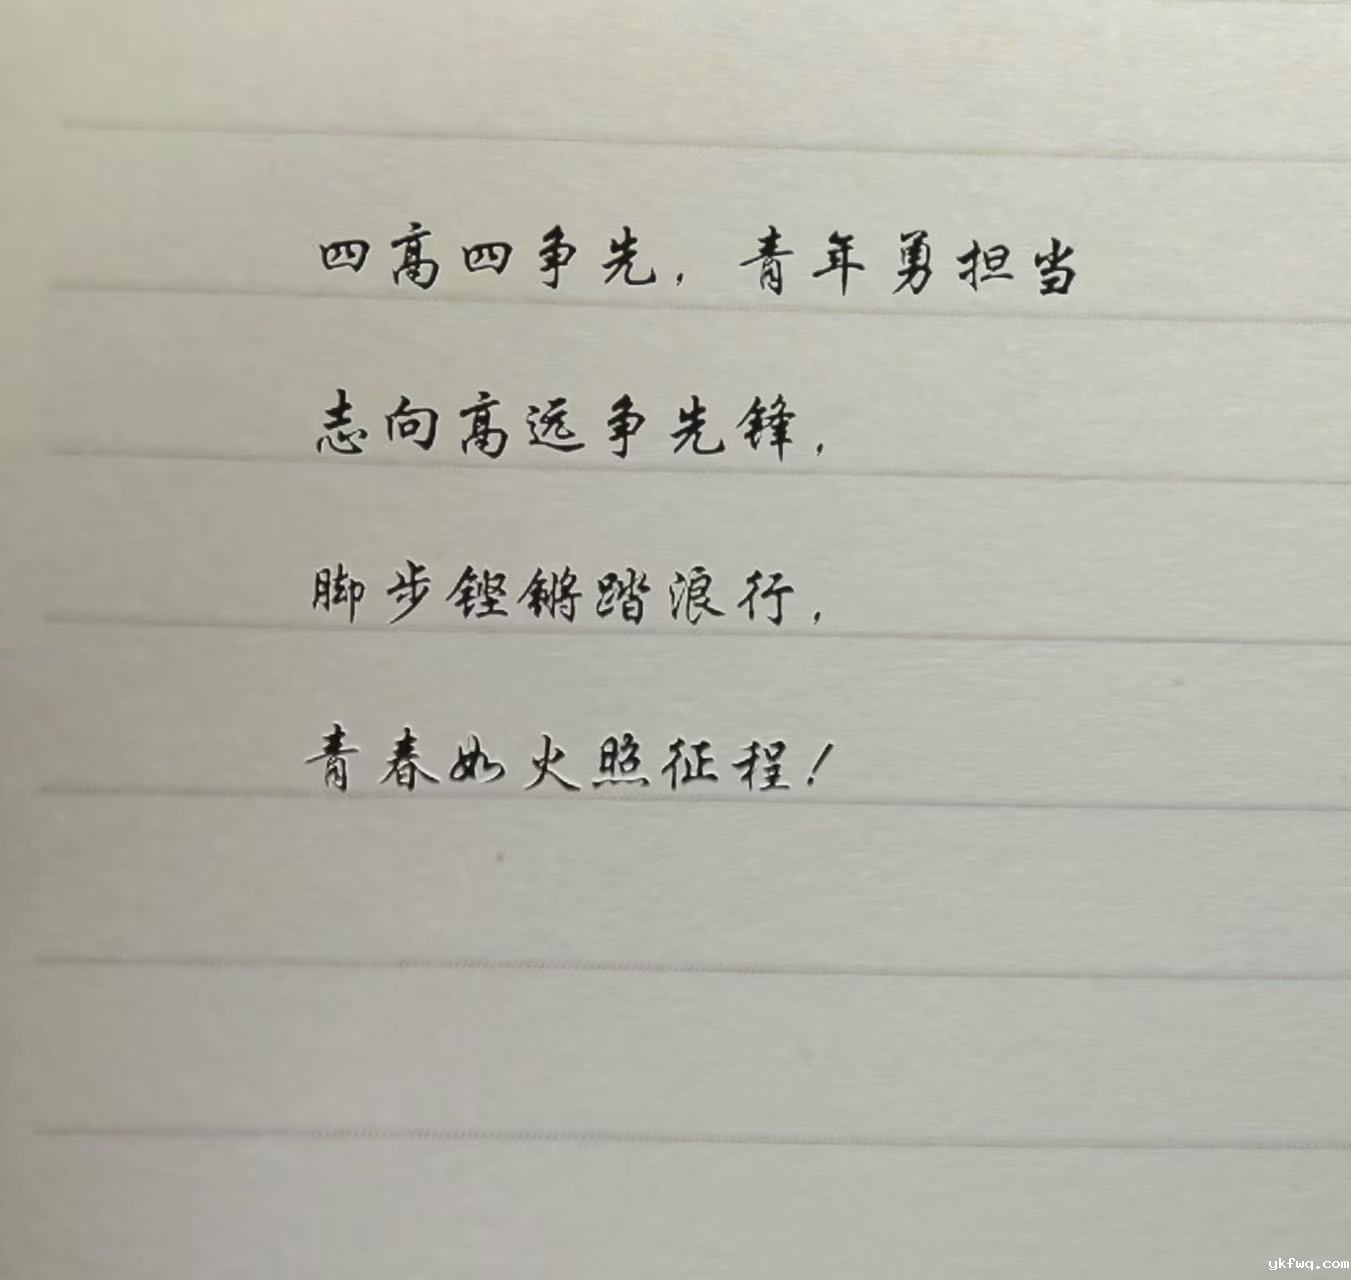 四高四争先，青年勇担当
志向高远争先锋，
脚步铿锵踏浪行，
青春如火照征程！
ykfwq.com